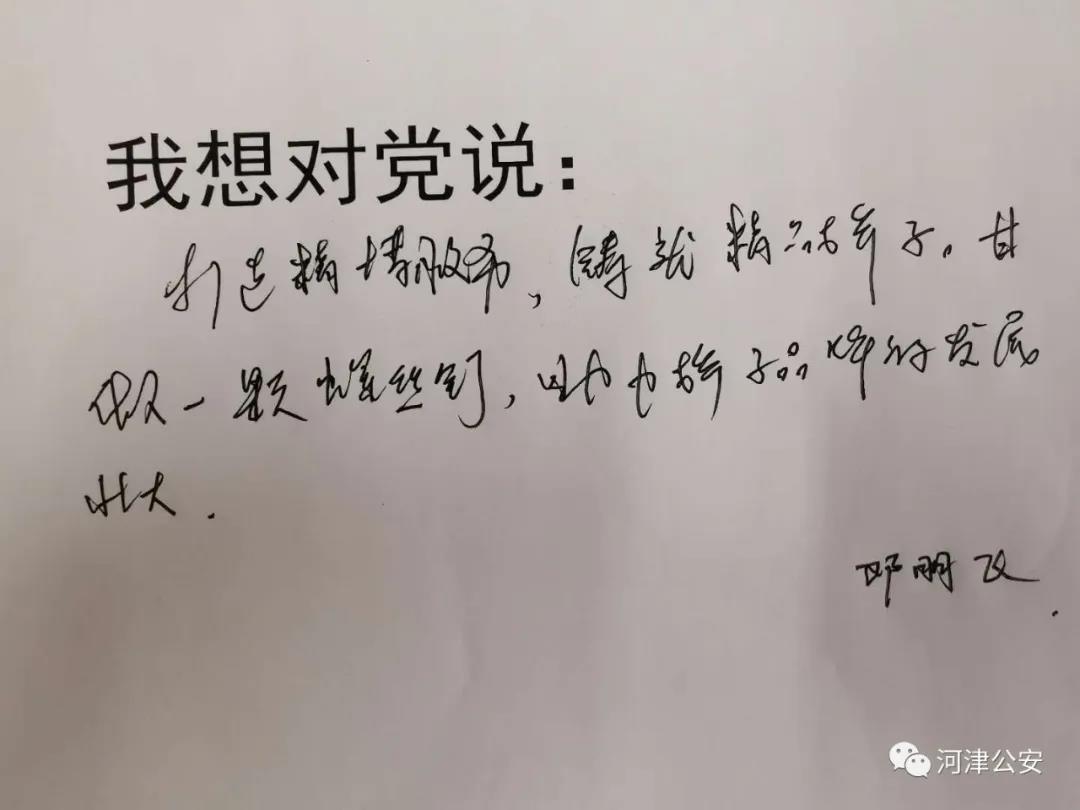 我想对党说：
打造精堪服务，铸就精品梯子。甘
做一颗螺丝钉，助力梯子品牌的发展
壮大.
邓明
河津公安